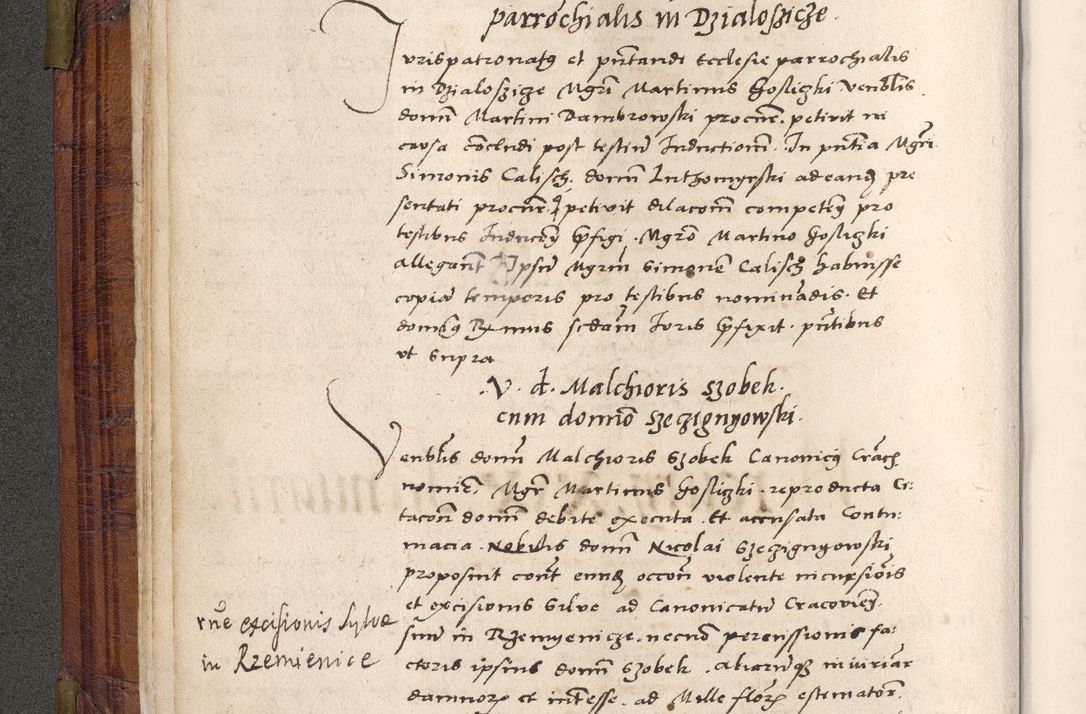 parrochialis in Dzialoszicze.
Jurispatronatus et pñtandi Ecclesie parrochialis
in Dzialoszicze Mgri Martinus Gosliczki Venlis
domni Martini Dambrowski procur. petivit in
causa concludi post testium Inductionem. In pñtia Mgri
Simonis Calisch. domni Lnthomyrski ad eandem pre
sentati procur. petivit dilacom competem pro
testibus Inducem pfigi. Mgro Martino Gosliczki
allegant Ipsum Mgrm Simonem Calisch habuisse
copiam temporis pro testibus nominandis. Et
dominus R. unus secdam Juris pfixit. pñtibus
ut supra
V. d. Malchioris Szobek.
cum domino Szeczignyowski.
Venblis domni Malchioris Szobek Canonici Crac.
nomine. Mgr Martinus Gosliczki. reproducta Ci:
tacom domni debite executa. Et accusata Contu:
macia. Nobilis domni Nicolai Szeczignyowski
proposuit cont eundem occom violente incursiois
et excisionis Silve ad Canonicatum Cracovien.
suum in Rzemyenicze. necnon percussionis fa:
ctoris ipsius domni Szobek. aliarumque iniuriar
damnor et intesse. ad Mille flor estimator.
rne excisionis Sylvæ
in Rzemienice